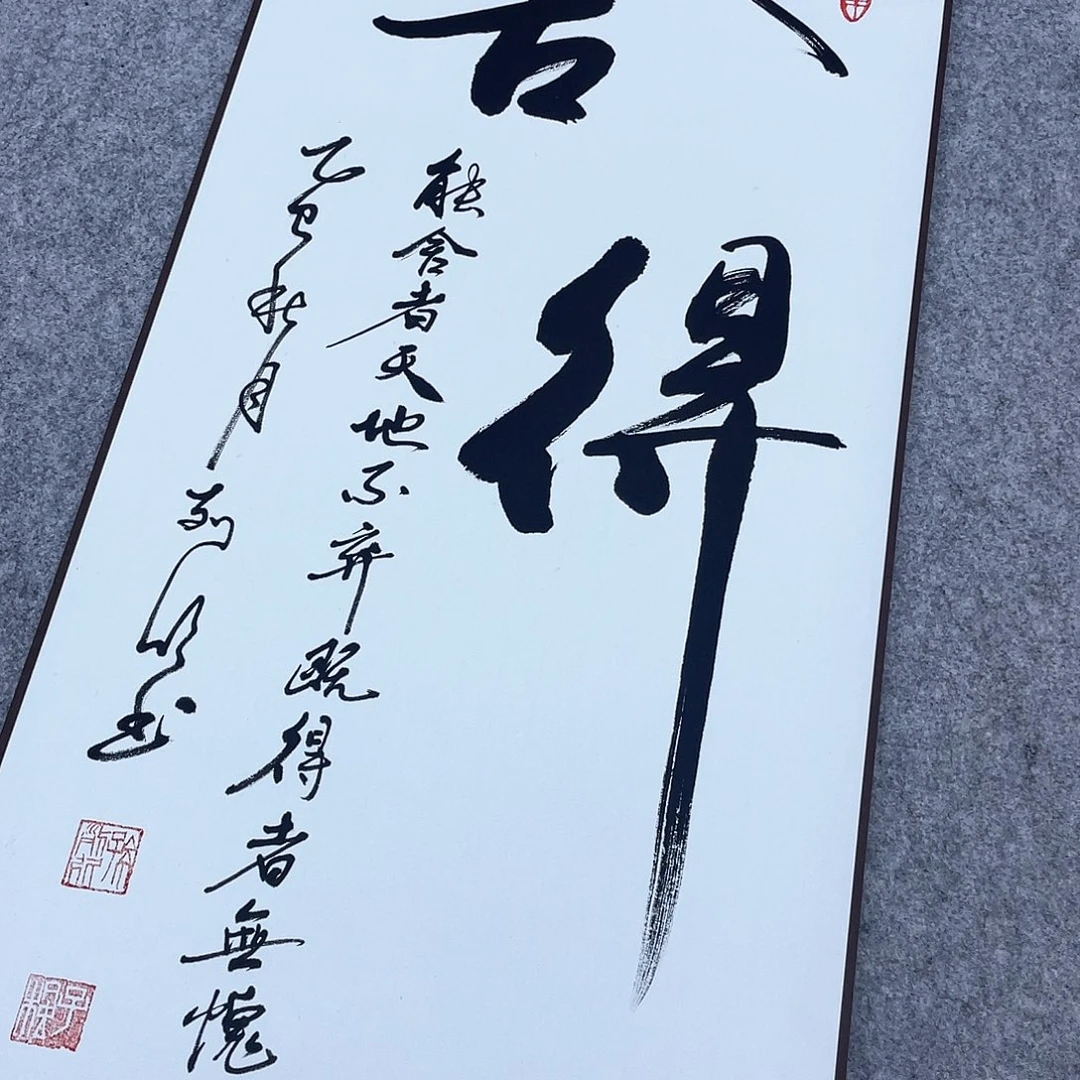 舍得
能舍者天地不弃既得者無愧
乙巳秋月 书